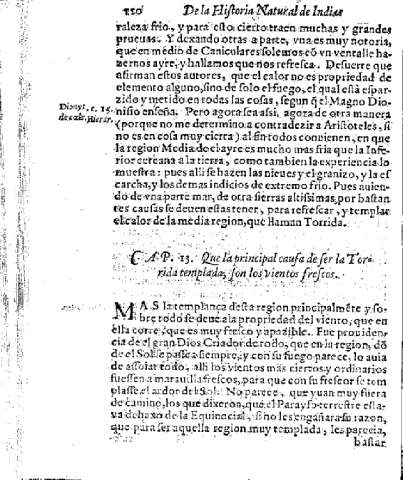 110 De la Historia Natural de Indias
raleza frio, y para esto cierto traen muchas y grandes
prueuas. Y dexando otras a parte, vna es muy notoria,
que en medio de Caniculares solemos cõ vn ventalle ha
zernos ayre, y hallamos que nos refresca. De suerte que
afirman estos autores, que el calor no es propriedad de
elemento alguno, sino de solo el fuego, el qual està espar-
zido y metido en todas las cosas, segun q̃ el Magno Dio-
nisio enseña. Pero agora sea assi, agora de otra manera
(porque no me determino a contradezir a Aristoteles, si
no es en cosa muy cierra) al fin todos conuienen, en que
la region Media del ayre es mucho mas fria que la Infe
rior cercana a la tierra, como tambien la experiencia lo
muestra: pues alli se hazen las nieues y el granizo, y la es
carcha, y los demas indicios de extremo frio. Pues auien-
do de vna parte mar, de otra sierras altissimas, por bastan
tes causas se deuen estas tener, para refrescar, y templar
el calor de la media region, que llaman Torrida.
Dionys. c. 15.
de cœle. Hierar.
CAP. 13. Que la principal causa de ser la Tor-
rida templada, son los vientos frescos.
MAS la templança desta region principalmẽte y so-
bre todo se deue a la propriedad del viento, que en
ella corre, que es muy fresco y apazible. Fue prouiden-
cia de el gran Dios Criador de todo, que en la region, dõ
de el Sol se passea siempre, y con su fuego parece, lo auia
de assolar todo, alli los vientos mas ciertos y ordinarios
fuessen a marauilla frescos, para que con su frescor se tem
plasse el ardor del Sol. No parece, que yuan muy fuera
de camino, los que dixeron, que el Parayso terrestre esta-
ua debaxo de la Equinocial, si no les engañara su razon,
que para ser aquella region muy templada, les parecia,
bastar